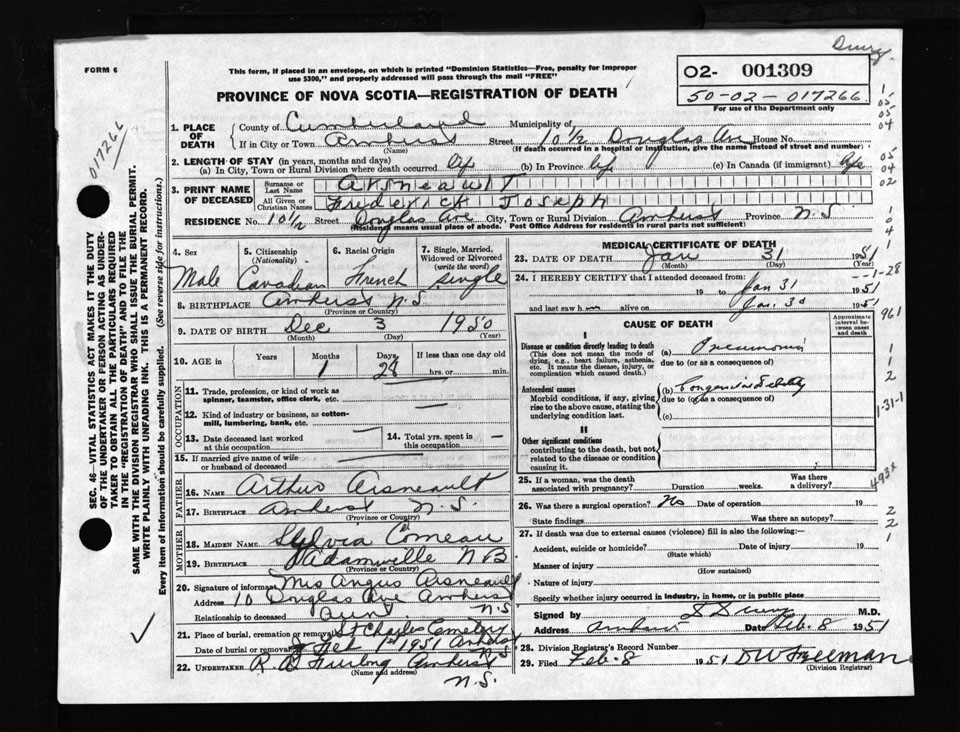 Drury
FORM 6
This form, if placed in an envelope, on which is printed "Dominion Statistics—Free, penalty for improper
use $300," and properly addressed will pass through the mail "FREE"
PROVINCE OF NOVA SCOTIA—REGISTRATION OF DEATH
02- 001309
50-02-017266
For use of the Department only
017266
1. PLACE OF DEATH
County of Cumberland Municipality of
If in City or Town Amherst Street 10 1/2 Douglas Ave House No.
(Name) (If death occurred in a hospital or institution, give the name instead of street and number)
2. LENGTH OF STAY (in years, months and days)
(a) In City, Town or Rural Division where death occurred life (b) In Province life (c) In Canada (if immigrant) life
3. PRINT NAME OF DECEASED
Surname or Last Name Arsneault
All Given or Christian Names Frederick Joseph
RESIDENCE No. 10 1/2 Street Douglas Ave City, Town or Rural Division Amherst Province N.S.
(Residence means usual place of abode. Post Office Address for residents in rural parts not sufficient)
4. Sex Male
5. Citizenship (Nationality) Canadian
6. Racial Origin French
7. Single, Married, Widowed or Divorced (write the word) single
8. BIRTHPLACE Amherst N.S.
(Province or Country)
9. DATE OF BIRTH Dec 3 1950
(Month) (Day) (Year)
10. AGE in Years Months 1 Days 28 If less than one day old
hrs. or min.
OCCUPATION
11. Trade, profession, or kind of work as
spinner, teamster, office clerk, etc. —
12. Kind of industry or business, as cotton-
mill, lumbering, bank, etc. —
13. Date deceased last worked
at this occupation
14. Total yrs. spent in
this occupation —
15. If married give name of wife
or husband of deceased
FATHER
16. NAME Arthur Arsneault
17. BIRTHPLACE Amherst N.S.
(Province or Country)
MOTHER
18. MAIDEN NAME Sylvia Comeau
19. BIRTHPLACE Adamsville N B
(Province or Country)
20. Signature of informant Mrs Angus Arsneault
Address 10 Douglas Ave Amherst N.S.
Relationship to deceased Aunt
21. Place of burial, cremation or removal St Charles Cemetery
Date of burial or removal Feb 1st 1951 Amherst N S
22. UNDERTAKER R. B. Furlong Amherst
(Name and address)
N.S.
SEC. 46—VITAL STATISTICS ACT MAKES IT THE DUTY
OF THE UNDERTAKER OR PERSON ACTING AS UNDER-
TAKER TO OBTAIN ALL THE PARTICULARS REQUIRED
IN THE "REGISTRATION OF DEATH" AND TO FILE THE
SAME WITH THE DIVISION REGISTRAR WHO SHALL ISSUE THE BURIAL PERMIT.
WRITE PLAINLY WITH UNFADING INK. THIS IS A PERMANENT RECORD.
Every item of information should be carefully supplied. (See reverse side for instructions.)
MEDICAL CERTIFICATE OF DEATH
23. DATE OF DEATH Jan 31 1951
(Month) (Day) (Year)
24. I HEREBY CERTIFY that I attended deceased from:
19 to Jan 31 1951
and last saw h alive on Jan. 30 1951
CAUSE OF DEATH
Approximate interval between onset and death
I
Disease or condition directly leading to death
(This does not mean the mode of
dying, e.g., heart failure, asthenia,
etc. It means the disease, injury, or
complication which caused death.)
(a) Pneumonia
due to (or as a consequence of)
Antecedent causes
Morbid conditions, if any, giving
rise to the above cause, stating the
underlying condition last.
(b) Congenital debility
due to (or as a consequence of)
(c)
II
Other significant conditions
contributing to the death, but not
related to the disease or condition
causing it.
25. If a woman, was the death
associated with pregnancy? Duration weeks. Was there a delivery?
26. Was there a surgical operation? No Date of operation 19
State findings Was there an autopsy?
27. If death was due to external causes (violence) fill in also the following:—
Accident, suicide or homicide? Date of injury 19
(State which)
Manner of injury
(How sustained)
Nature of injury
Specify whether injury occurred in industry, in home, or in public place
Signed by Drury M.D.
Address Amherst Date Feb. 8 1951
28. Division Registrar's Record Number
29. Filed Feb-8 1951 D W Freeman
(Division Registrar)
05
05
04
05
04
02
1
0
4
--1-28
961
1
1
2
1-31-1
493x
2
2
1